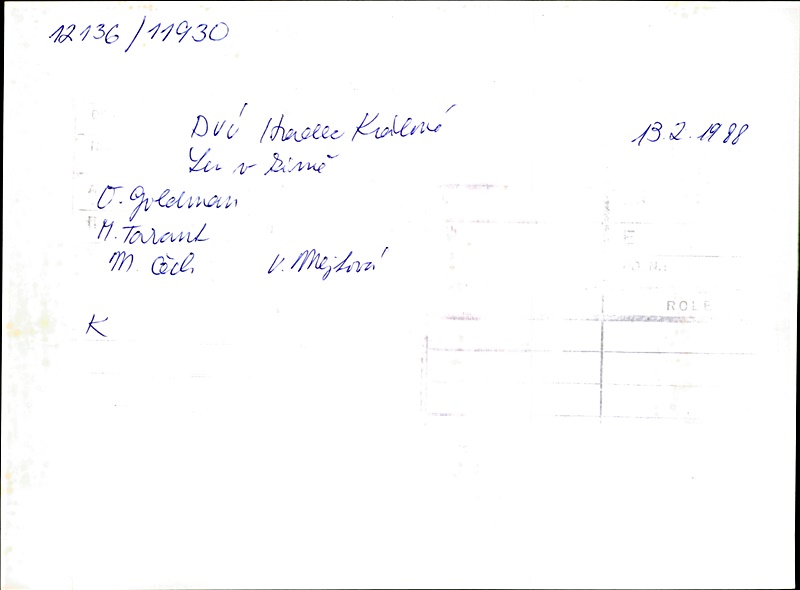 12136/11930
DVÚ Hradec Králové 13.2.1988
Lev v zimě
O. Goldman
M. Tarant
M. Čech V. Mejtová
ROLE
K